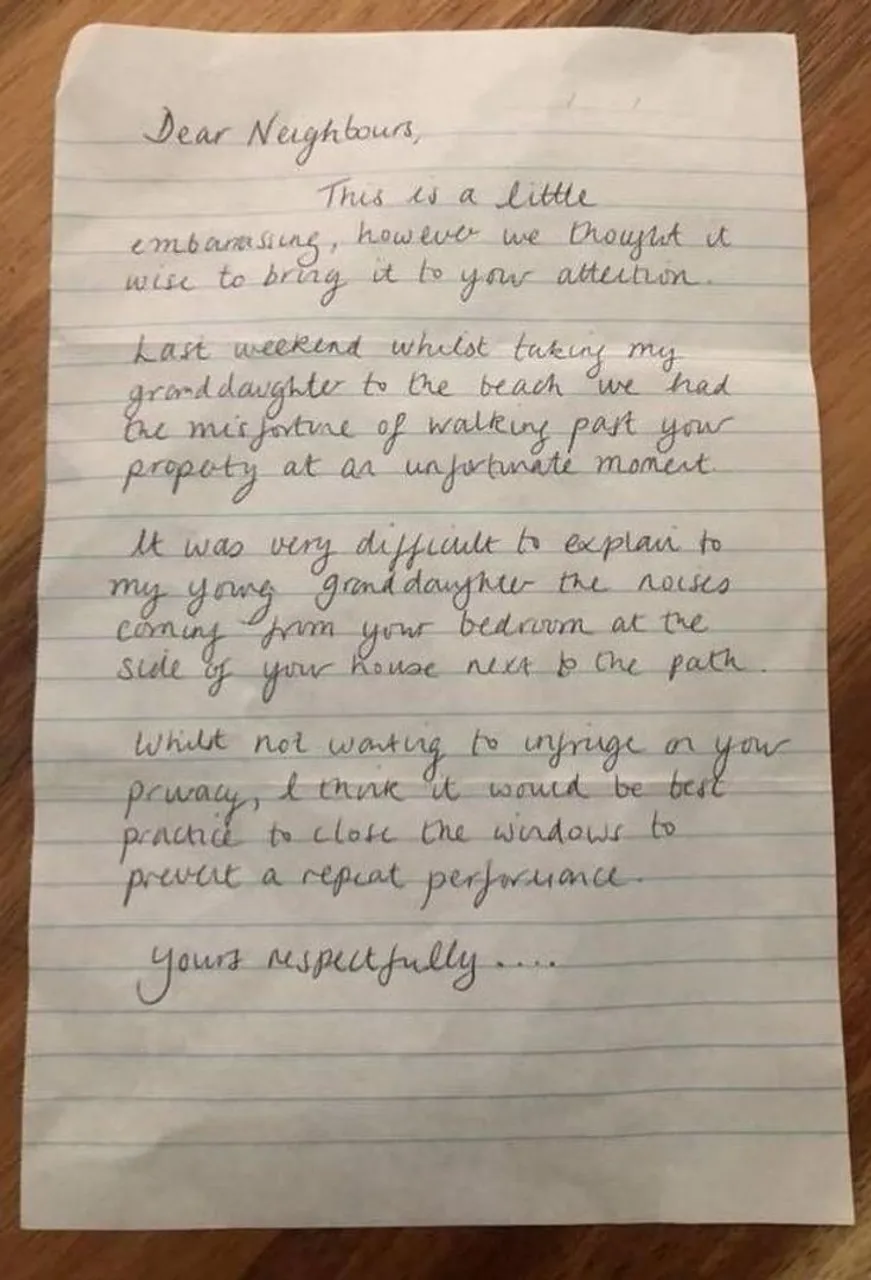 Dear Neighbours,
This is a little
embarrasing, however we thought it
wise to bring it to your attention.
Last weekend whilst taking my
granddaughter to the beach we had
the misfortune of walking past your
property at an unfortunate moment.
It was very difficult to explain to
my young granddaughter the noises
coming from your bedroom at the
side of your house next to the path.
Whilst not wanting to infringe on your
privacy, I think it would be best
practice to close the windows to
prevent a repeat performance.
Yours respectfully....